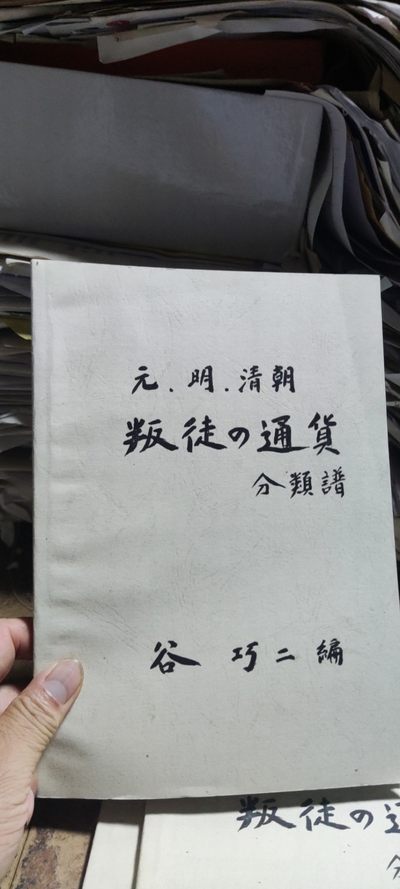 元．明．清朝
叛徒の通貨
分類譜
谷 巧二編
叛徒の通